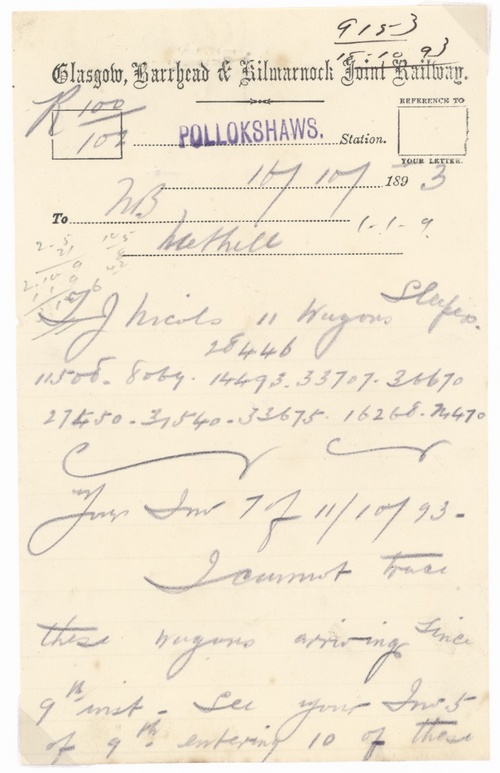 9153
15-10 93
Glasgow, Barrhead & Kilmarnock Joint Railway.
R 100
102
REFERENCE TO
YOUR LETTER.
POLLOKSHAWS. Station.
16/10/1893
To NB
Methill
1-1-9
J Nicols 11 Wagons Sleepers.
28446
11508. 8069. 14493. 33707. 36670
27450. 31540. 33675. 16268.
Your Inv 7 of 11/10/93 -
I cannot trace
these wagons arriving since
9th inst - See your Inv 5
of 9th entering 10 of these